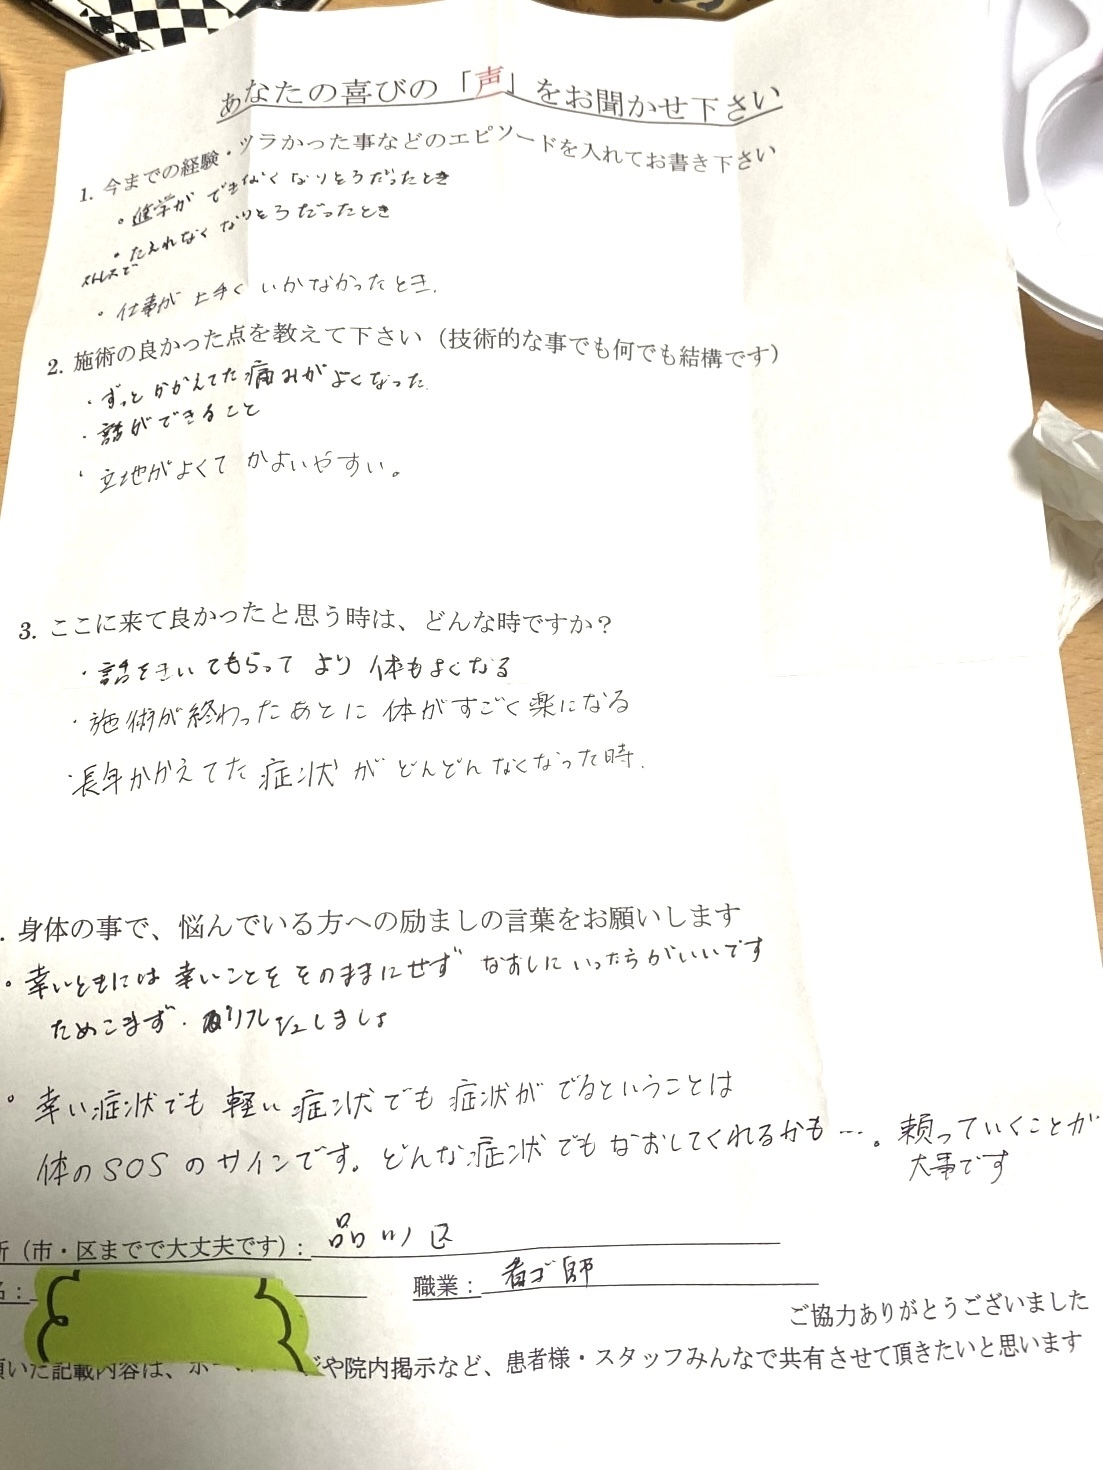 あなたの喜びの「声」をお聞かせ下さい
1. 今までの経験・ツラかった事などのエピソードを入れてお書き下さい
・進学ができなくなりそうだったとき
・たえれなくなりそうだったとき
ストレスで
・仕事が上手くいかなかったとき.
2. 施術の良かった点を教えて下さい（技術的な事でも何でも結構です）
・ずっとかかえてた痛みがよくなった.
・話ができること
・立地がよくてかよいやすい。
3. ここに来て良かったと思う時は、どんな時ですか？
・話をきいてもらってより体もよくなる
・施術が終わったあとに体がすごく楽になる
・長年かかえてた症状がどんどんなくなった時.
. 身体の事で、悩んでいる方への励ましの言葉をお願いします
・幸いときには幸いことをそのままにせずなおしにいったらがいいです
ためこまず・リフレッシュしましょ
・幸い症状でも軽い症状でも症状がでるということは
体のSOSのサインです。どんな症状でもなおしてくれるかも…。頼っていくことが
大事です
所（市・区までで大丈夫です）: 品川区
名: 職業: 看ゴ師
ご協力ありがとうございました
頂いた記載内容は、ホ ジや院内掲示など、患者様・スタッフみんなで共有させて頂きたいと思います